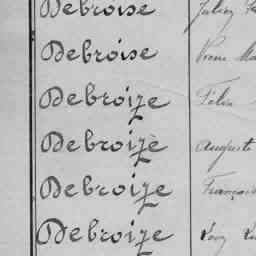 Debroise Julien
Debroise
Debroize Félix
Debroizè Auguste
Debroize François
Debroize